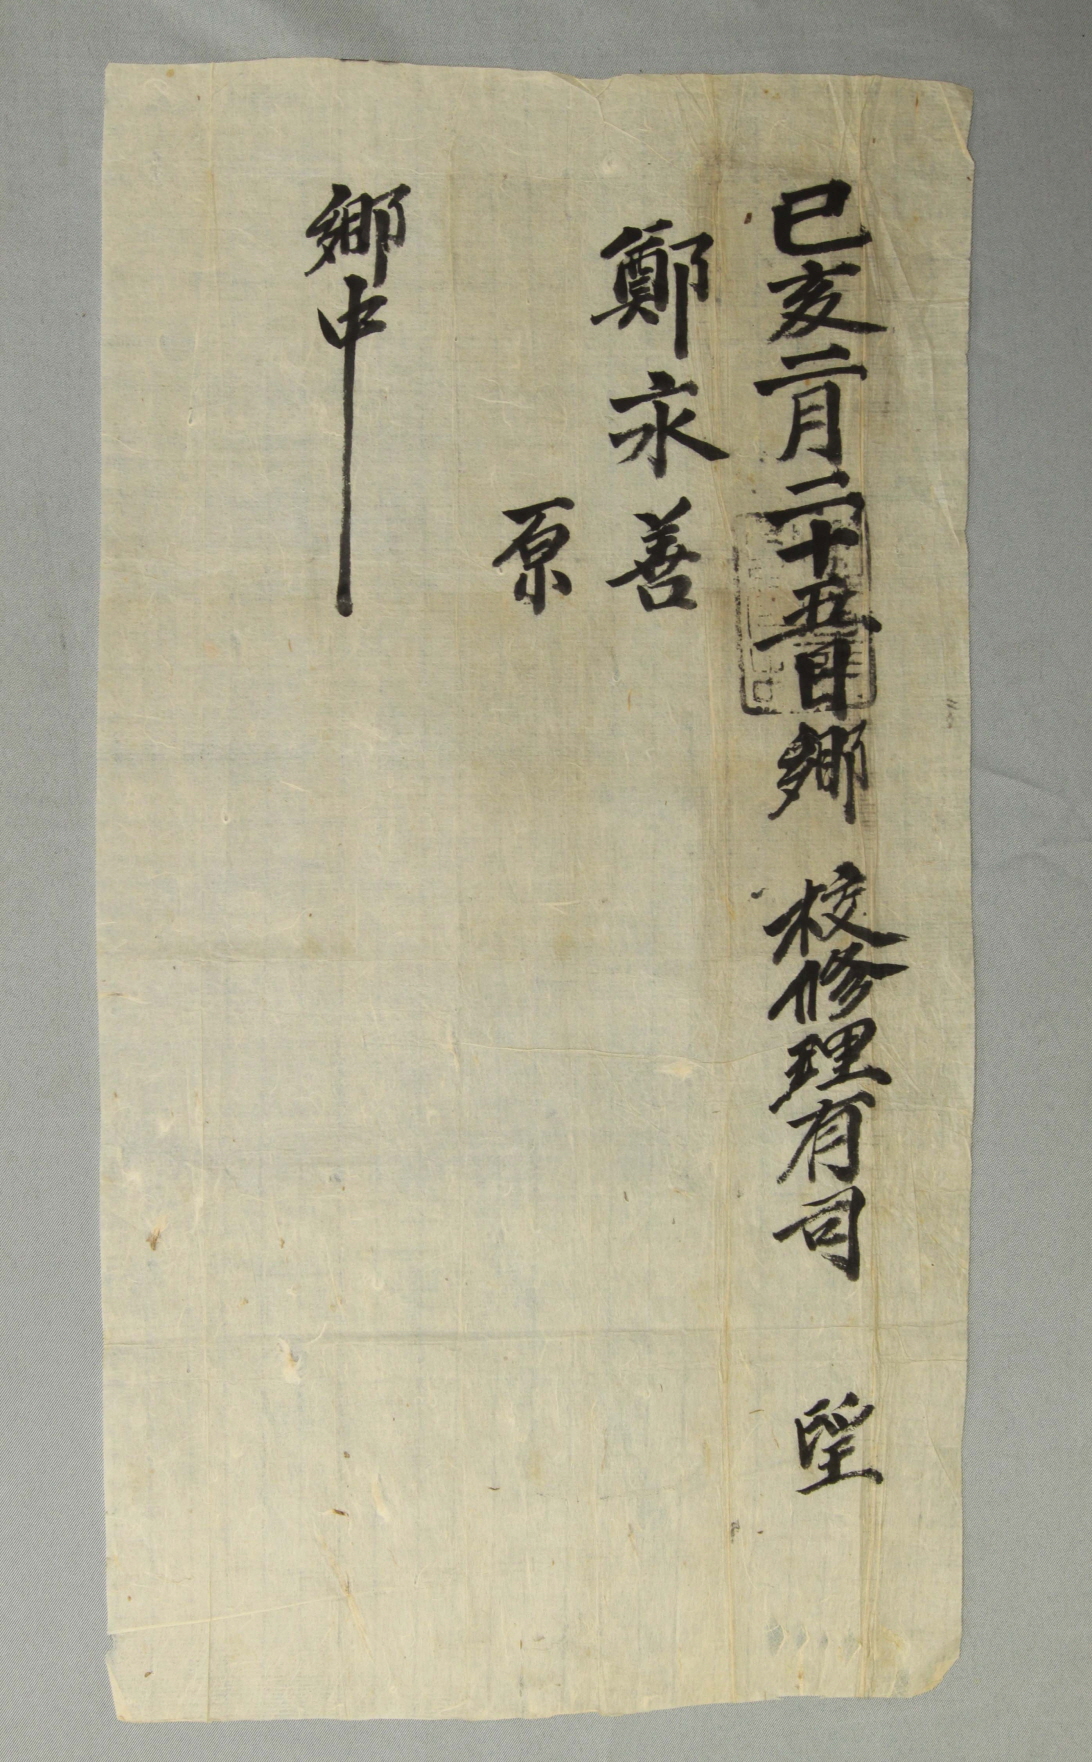 己亥二月二十五日鄕校修理有司望
鄭永善
原
鄕中